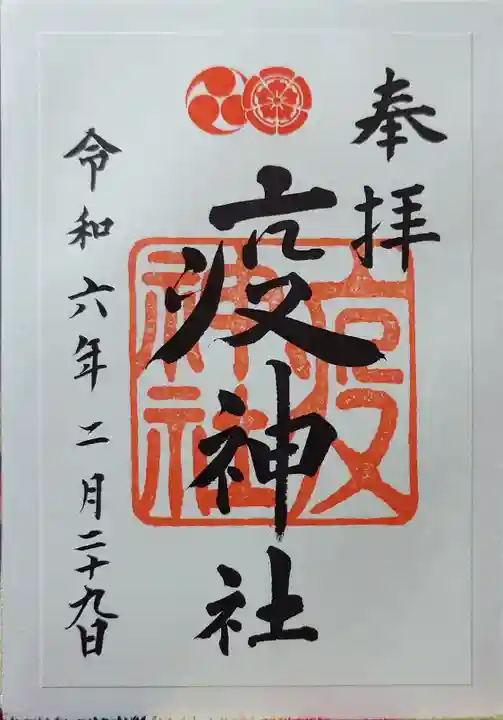 奉拝
疫神社
疫神社
令和六年二月二十九日